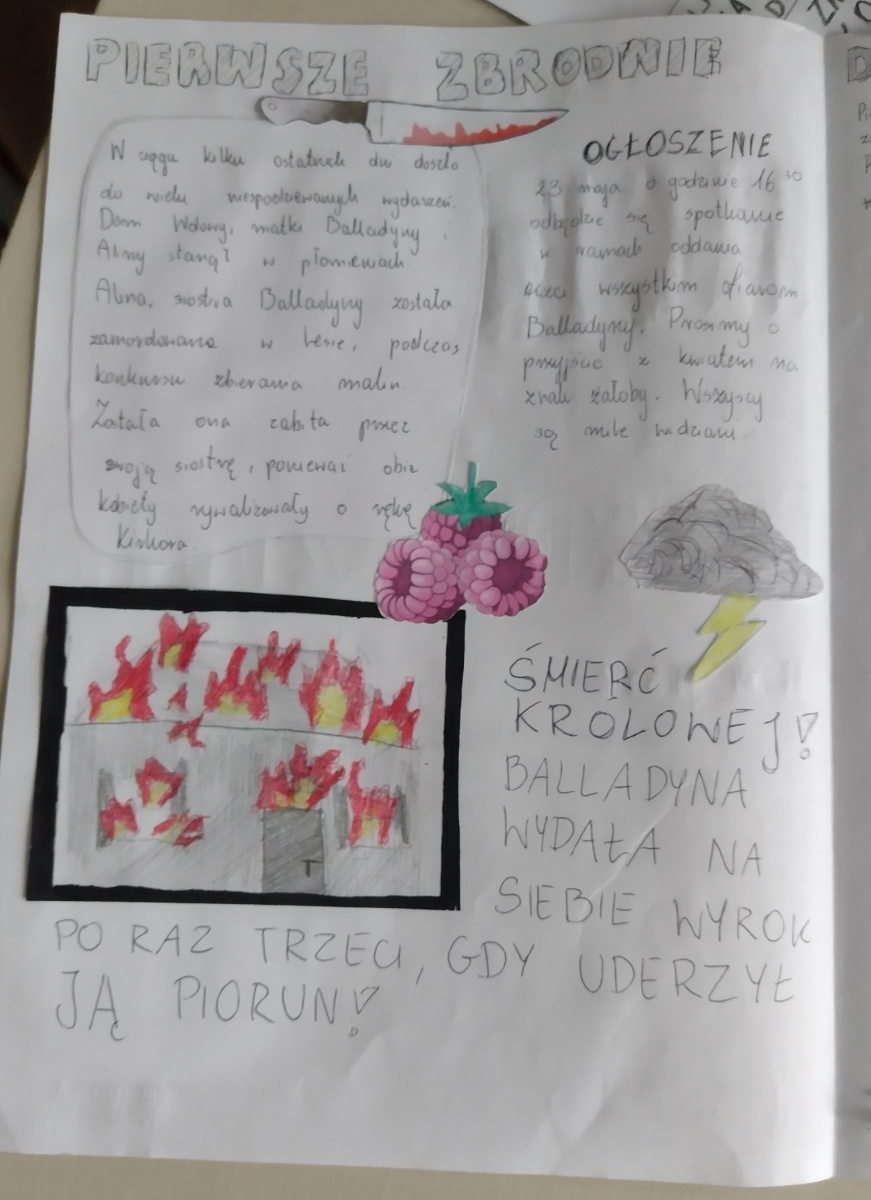 PIERWSZE ZBRODNIE
W ciągu kilku ostatnich dni doszło
do wielu niespodziewanych wydarzeń.
Dom Wdowy, matki Balladyny i
Aliny stanął w płomieniach.
Alina, siostra Balladyny została
zamordowana w lesie, podczas
konkursu zbierania malin.
Zatała ona zabita przez
swoją siostrę, ponieważ obie
kobiety rywalizowały o rękę
Kirkora.
OGŁOSZENIE
23 maja o godzinie 16 30
odbędzie się spotkanie
w ramach oddawa
czci wszystkim ofiarom
Balladyny. Prosimy o
przyjście z kwiatem na
znak żałoby. Wszyscy
są mile widziani.
ŚMIERĆ
KRÓLOWEJ!
BALLADYNA
WYDAŁA NA
SIEBIE WYROK
PO RAZ TRZECI, GDY UDERZYŁ
JĄ PIORUN!